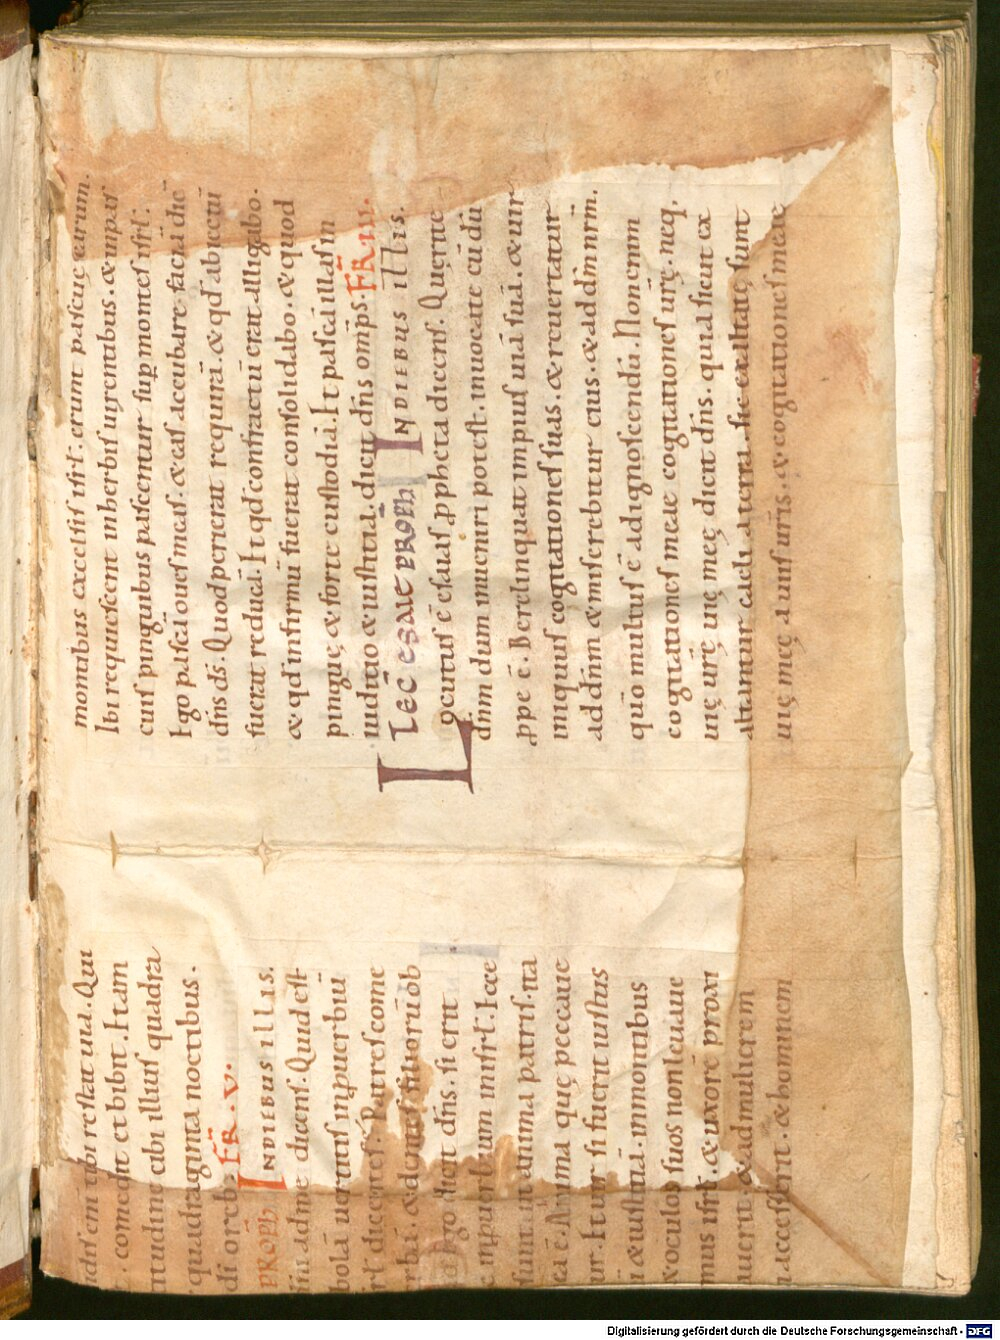 montibus excelsis isrł. erunt pascuę earum.
Ibi requiescent in herbis uirentibus. & in pas
cuis pinguibus pascentur sup montes isrł.
Ego pascā oues meas. & eas accubare faciā dic̄
dn̄s ds̄. Quod perierat requirā. & qd̄ abiectū
fuerat reducā. Et qd̄ confractū erat alligabo.
& qd̄ infirmū fuerat consolidabo. & quod
pingue & forte custodiā. Et pascā illas in
iudicio & iustitia. dicit dn̄s omp̄s. FR̄. IIII.
LEC̄ ESAIE PROPH̄ IN DIEBUS ILLIS.
Locutus ē esaias ꝓpheta dicens. Querite
dn̄m dum inueniri potest. inuocate eū dū
ꝓpe ē. Derelinquat impius uiā suā. & uir
iniquus cogitationes suas. & reuertatur
ad dn̄m & miserebitur eius. & ad dm̄ nrm̄.
quō multus ē ad ignoscendū. Non enim
cogitationes meae cogitationes ur̄ę. neq.
uię ur̄ę uię meę dicit dn̄s. quia sicut ex
altantur caeli a terra. sic exaltatę sunt
uię meę a uiis uīris. & cogitationes meae
enī tibi restat uia. Qui
comedit et bibit. Et am
titudine cibi illius quadra
quadraginta noctibus.
di oreb. FR̄. V.
PROPH̄ IN DIEBUS ILLIS.
ad me dicens. Quid est
bolā uertitis in ꝓuerbiū
dicentes. Patres come
& dentes filiorū ob
ego dicit dn̄s. si erit
in ꝓuerbium in isrł. Ecce
sunt. ut anima patris. ita
ē. Anima quę peccaue
ur. Et uir si fuerit iustus
& iustitiā. in montibus
& oculos suos non leuaue
mus isrł. & uxorē proxi
uerit. & ad mulierem
accesserit. & hominem
Digitalisierung gefördert durch die Deutsche Forschungsgemeinschaft - DFG